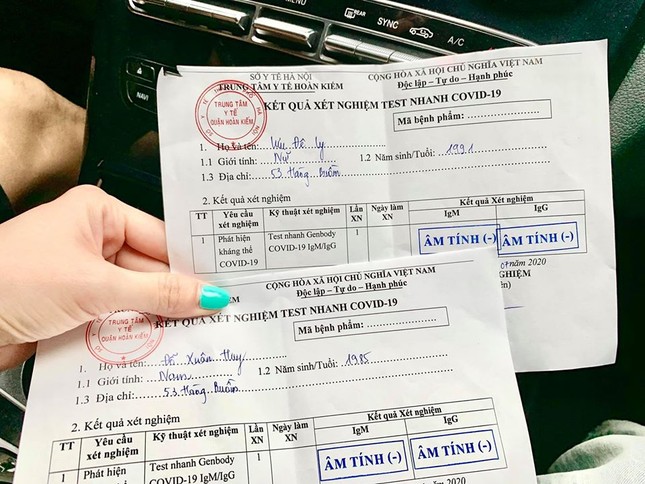 REAR
SYNC
A/C
NAVI
SỞ Y TẾ HÀ NỘI
TRUNG TÂM Y TẾ HOÀN KIẾM
CỘNG HÒA XÃ HỘI CHỦ NGHĨA VIỆT NAM
Độc lập – Tự do – Hạnh phúc
TRUNG TÂM
Y TẾ
QUẬN HOÀN KIẾM
KẾT QUẢ XÉT NGHIỆM TEST NHANH COVID-19
Mã bệnh phẩm: ....................
1. Họ và tên: Vũ Đê Ly
1.1 Giới tính: Nữ 1.2 Năm sinh/Tuổi: 1991
1.3 Địa chỉ: 53 Hàng Buồm
2. Kết quả xét nghiệm
TT Yêu cầu xét nghiệm Kỹ thuật xét nghiệm Lần XN Ngày làm XN Kết quả Xét nghiệm
IgM IgG
1 Phát hiện kháng thể COVID-19 Test nhanh Genbody COVID-19 IgM/IgG 1 ÂM TÍNH (-) ÂM TÍNH (-)
07 năm 2020
NGHIỆM
CỘNG HÒA XÃ HỘI CHỦ NGHĨA VIỆT NAM
Độc lập – Tự do – Hạnh phúc
TRUNG TÂM
Y TẾ
QUẬN HOÀN KIẾM
KẾT QUẢ XÉT NGHIỆM TEST NHANH COVID-19
Mã bệnh phẩm: ....................
1. Họ và tên: Đỗ Xuân Huy
1.1 Giới tính: Nam 1.2 Năm sinh/Tuổi: 1985
1.3 Địa chỉ: 53 Hàng Buồm
2. Kết quả xét nghiệm
TT Yêu cầu xét nghiệm Kỹ thuật xét nghiệm Lần XN Ngày làm XN Kết quả Xét nghiệm
IgM IgG
1 Phát hiện kháng thể Test nhanh Genbody COVID-19 IgM/IgG 1 ÂM TÍNH (-) ÂM TÍNH (-)
năm 2020